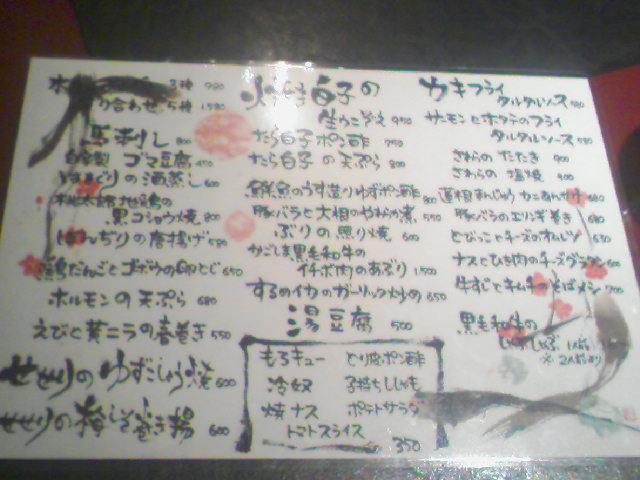 り合わせ 5種 1580
馬刺し 800
自家製 ゴマ豆腐 450
はまぐりの酒蒸し 600
桃太郎地鶏の
黒コショウ焼 800
ぼんぢりの唐揚げ 580
鶏だんごとゴボウの卵とじ 650
ホルモンの天ぷら 680
えびと黄ニラの春巻き 550
せせりのゆずこしょう焼 600
せせりの梅しそ巻き揚 600
白子の
生ウニ添え 950
たら白子ポン酢 750
たら白子の天ぷら 800
鮮魚のうす造りゆずポン酢 800
豚バラと大根のやわらか煮 550
ぶりの照り焼 600
かごしま黒毛和牛の
イチボ肉のあぶり 1500
するめイカのガーリック炒め 650
湯豆腐 500
もろキュー とり皮ポン酢
冷奴 子持ちししゃも
焼ナス ポテトサラダ
トマトスライス
350
カキフライ
タルタルソース
サーモンとホタテのフライ
タルタルソース
さわらのたたき 900
さわらの塩焼 900
蓮根まんじゅう カニあんかけ 680
豚バラのエリンギ巻き 680
とびっことチーズのオムレツ 630
ナスとひき肉のチーズグラタン 680
牛すじとキムチのそばメシ 700
黒毛和牛の
しゃぶしゃぶ 1人前
※2人前より